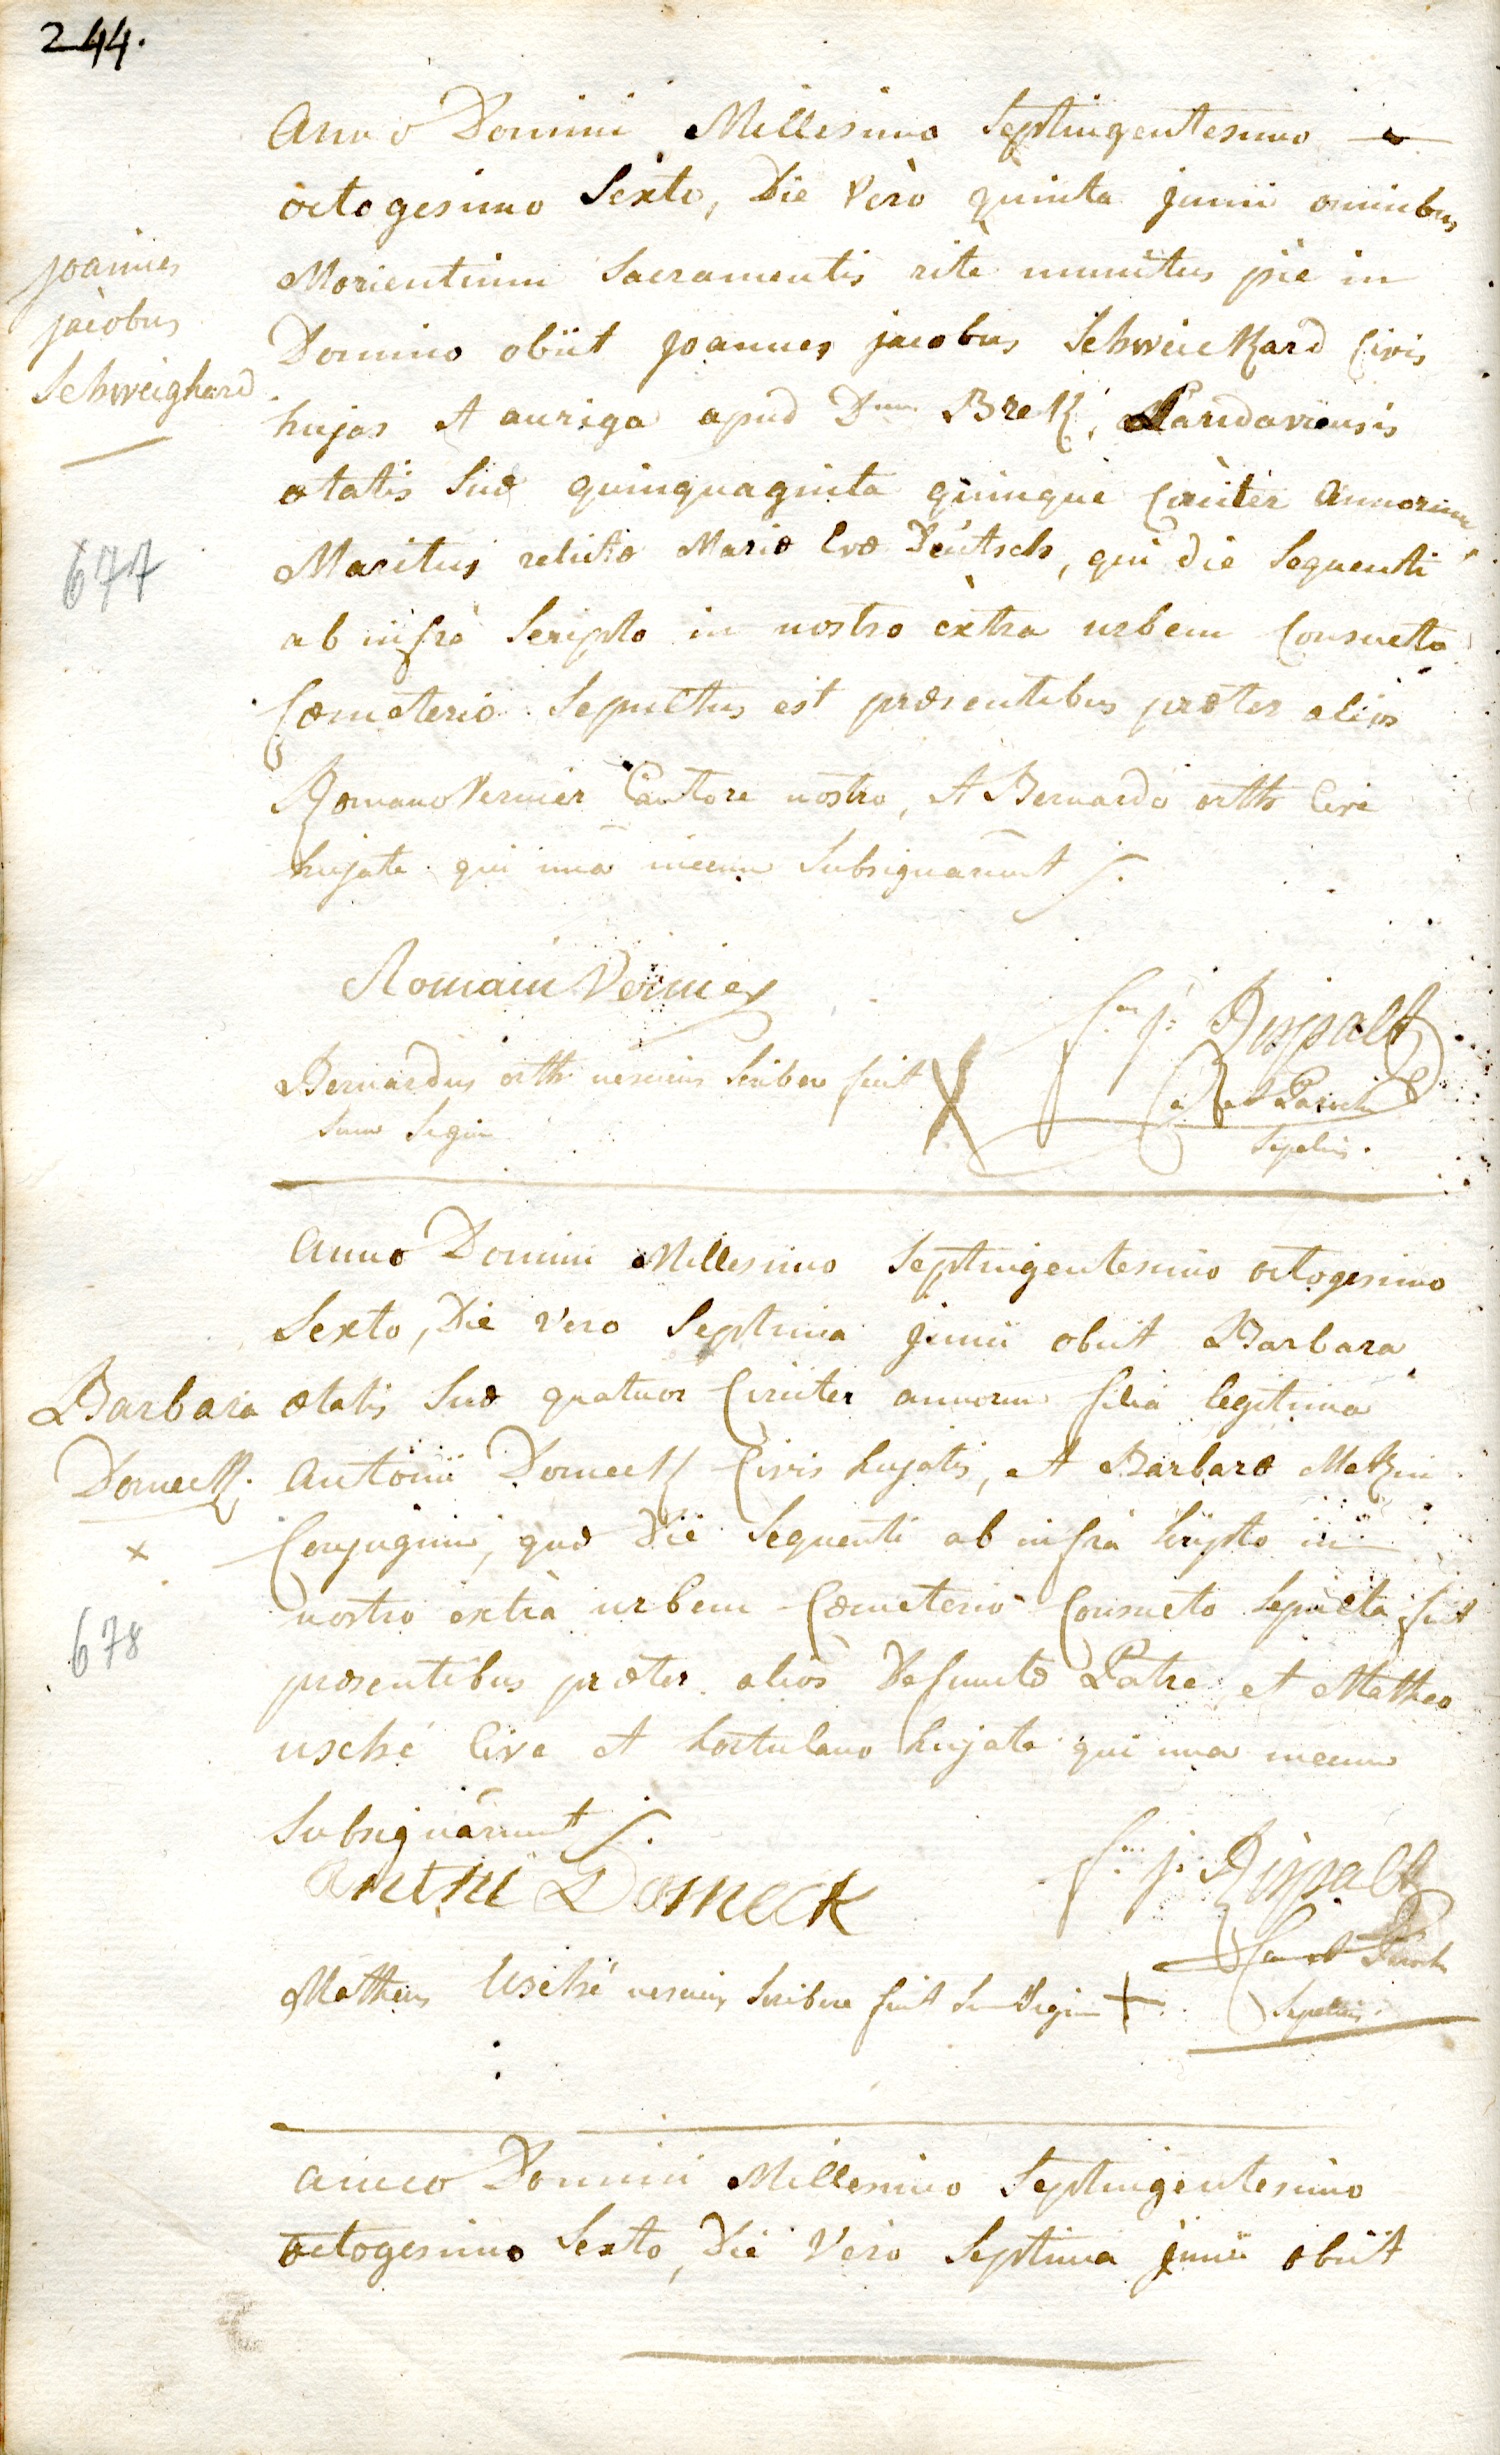 244.
Anno Domini Millesimo Septingentesimo
octogesimo Sexto, Die Verò quinta junii omnibus
Morientium Sacramentis ritè munitus piè in
Domino obiit joannes jacobus Schweickard Civis
hujas et auriga apud Dnum Brek, Landaviensis
ætatis suæ quinquaginta quinque Circiter annorum
Maritus relictæ Mariæ Evæ Deutsch, qui die sequenti
ab infrà Scripto in nostro èxtra urbem Consueto
Cœmeterio Sepultus est præsentibus præter alios
Romano Vernier Cantore nostro, et Bernardo orth Cive
hujate qui unà mecum subsignarunt
joannes
jacobus
Schweighard
677
Romain Vernier
f. j. Ruppalt
Bernardus orth nescius scribere fecit
suum signum X
Can. et Parochus
Sepeliens.
Anno Domini Millesimo Septingentesimo octogesimo
Sexto, Die vero Septima junii obiit Barbara
ætatis suæ quatuor Circiter annorum filia legitima
Antonii Domeck Civis hujatis, et Barbaræ Metzin
Conjugum, quæ Die sequenti ab infrà scripto in
nostro extrà urbem Cœmeterio Consueto Sepulta fuit
præsentibus præter alios Defunctæ Patre et Matheo
usché Cive et hortulano hujate qui una mecum
subsignârunt
Barbara
Domeck.
x
678
f. j. Ruppalt
antoni Domeck
Can. et Paroch.
Matheus Usché nescius scribere fecit suum signum +
Sepeliens.
anno Domini Millesimo Septingentesimo
octogesimo Sexto, Die Verò Septima junii obiit